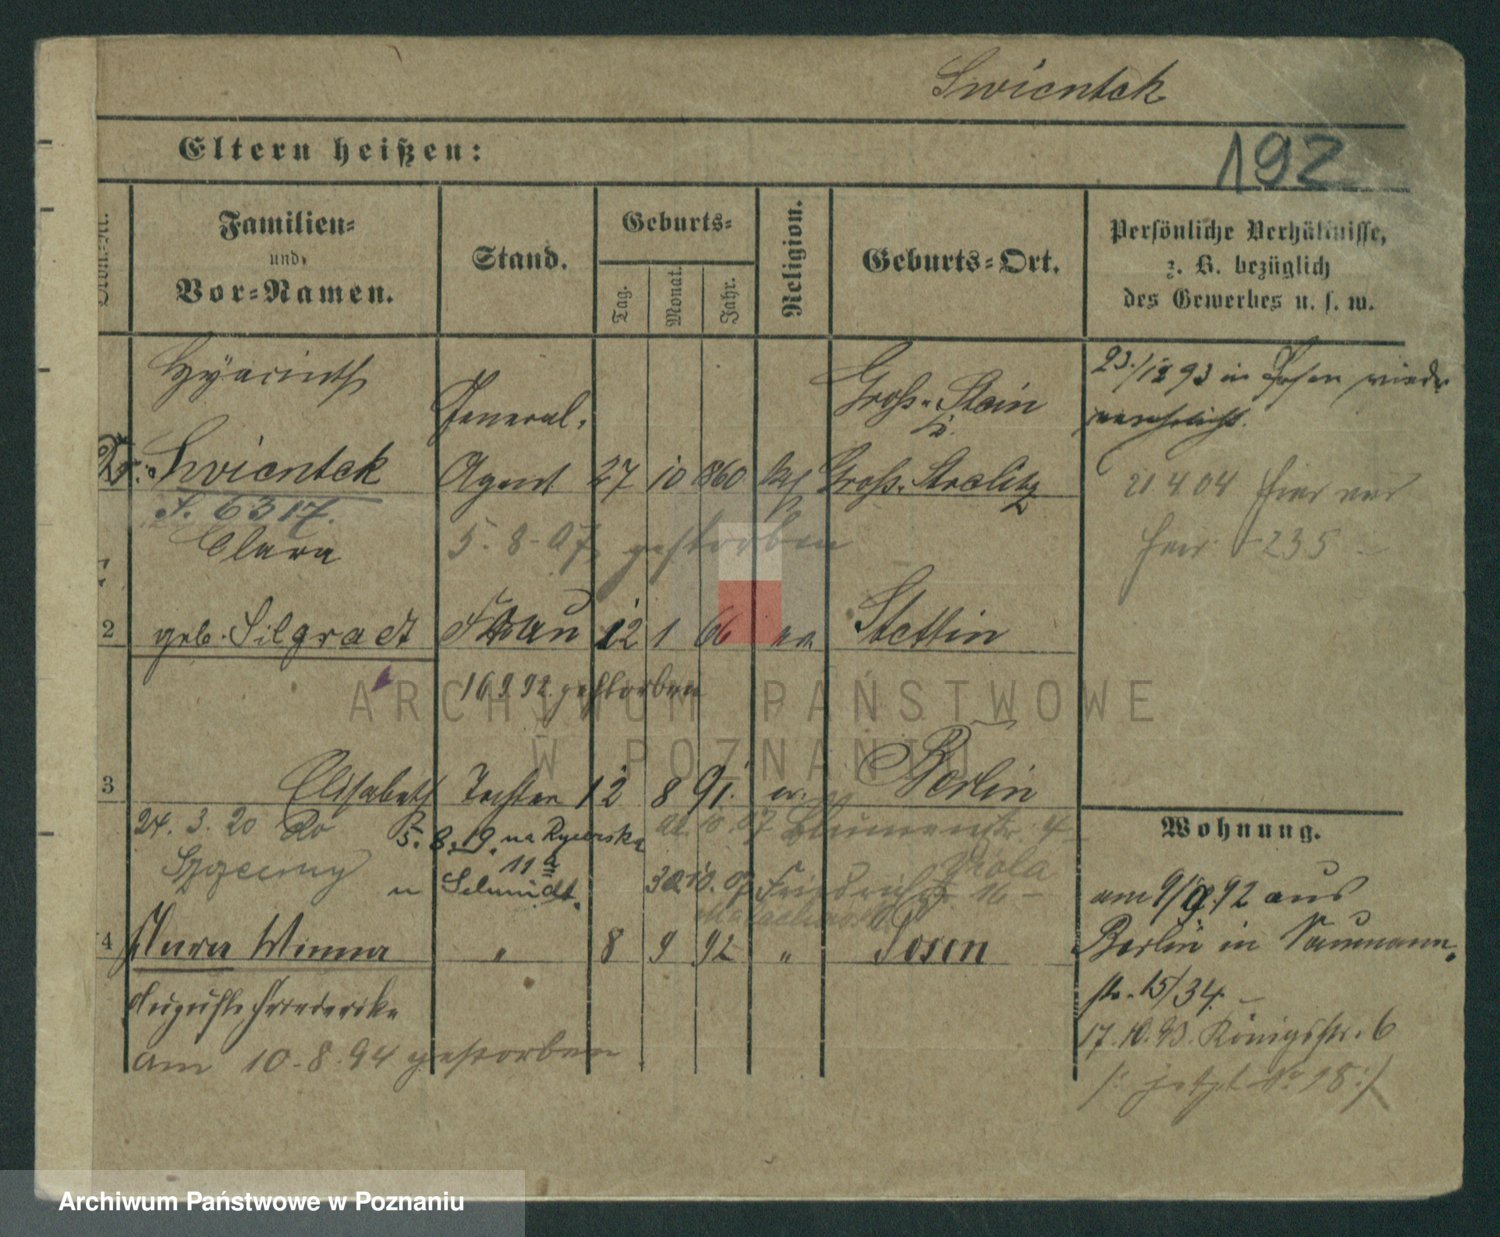 Swientek
192
Eltern heißen:
Familien=
und
Vor=Namen.
Stand.
Geburts=
Tag.
Monat.
Jahr.
Religion.
Geburts=Ort.
Persönliche Verhältnisse,
z. B. bezüglich
des Gewerbes u. s. w.
Hyacinth
General-
Groß-Stein
23./12 93 in Posen wieder
Swientek
Agent 27 10 860
Groß-Strelitz
F. 6317.
21 4 04 hier
235
Clara
5.8.07 gestorben
2 geb. Silgradt Frau 12 1 66 Stettin
16 9 92 gestorben
ARCHIWUM PAŃSTWOWE
W POZNANIU
3 Elisabeth Tochter 12 8 91. Berlin
24. 3. 20 Do
5. 8. 19. na Rycerska
10 07 Blumenstr. 4
Wohnung.
11a
Viola
u Schmidt.
30.10.07 Friedrichstr. 16
am 9/9.92 aus
4 Clara Minna " 8 9 92 " Posen
Berlin in Naumann-
str. 15/34.
Auguste Friederike
17.10.93. Königsstr. 6
am 10.8.94 gestorben
/: jetzt No 18 :/
Archiwum Państwowe w Poznaniu